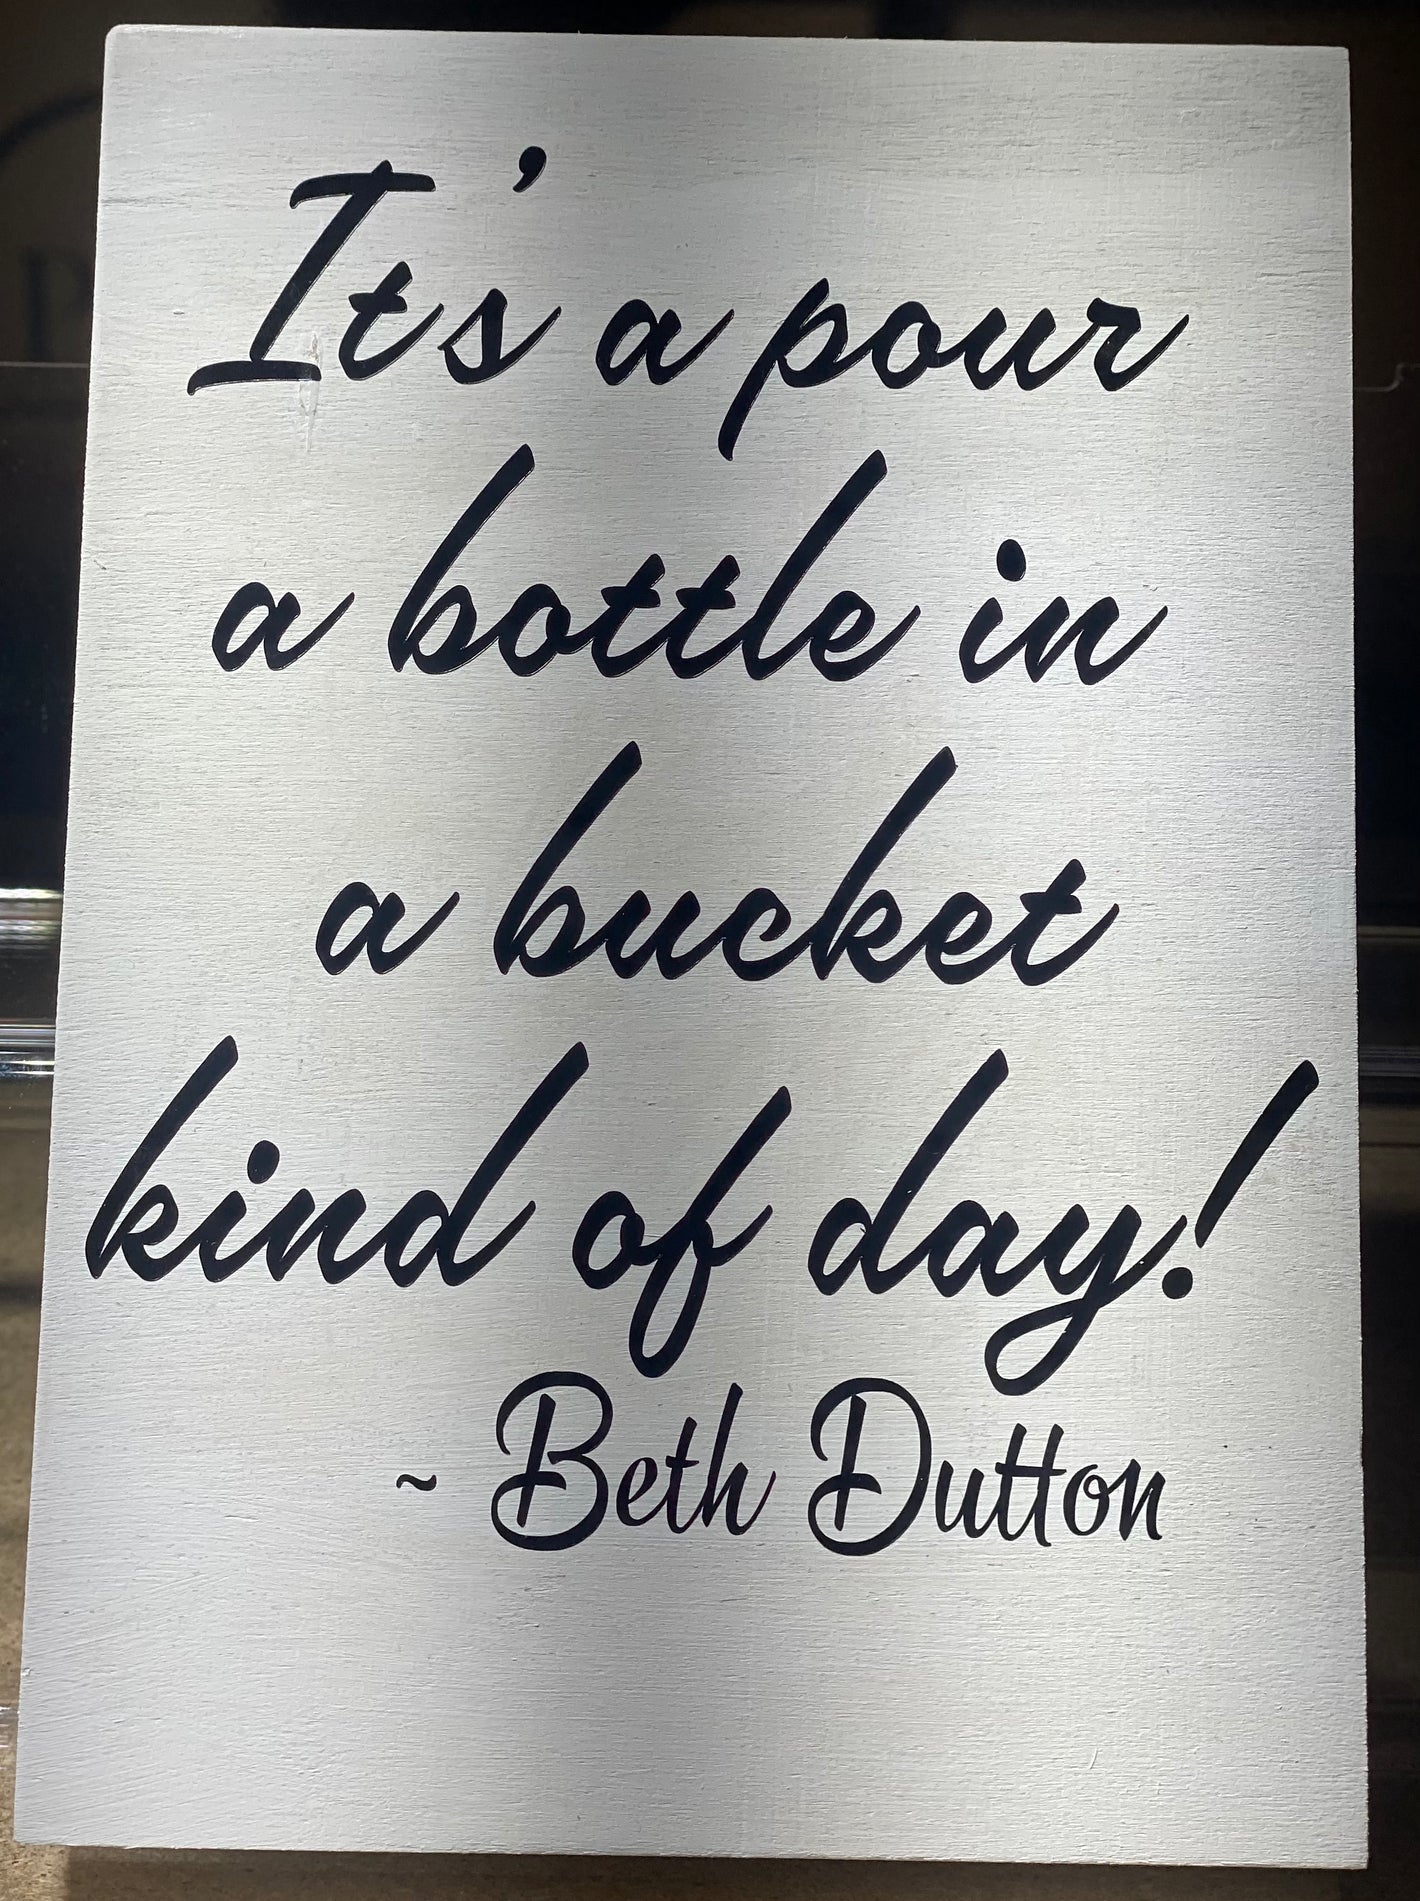 It's a pour
a bottle in
a bucket
kind of day!
~ Beth Dutton